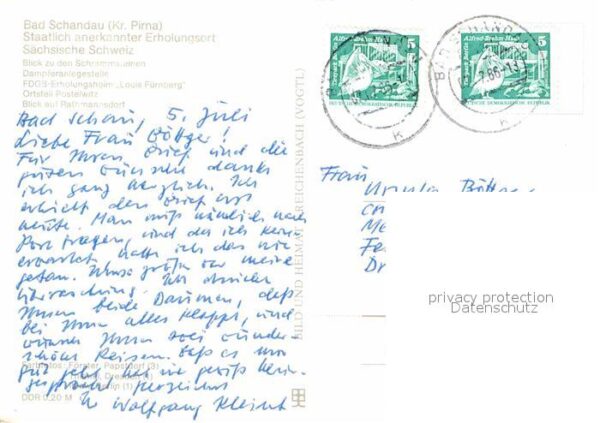 Bad Schandau (Kr. Pirna)
Staatlich anerkannter Erholungsort
Sächsische Schweiz
Blick zu den Schrammsteinen
Dampferanlegestelle
FDGB-Erholungsheim „Louis Fürnberg"
Ortsteil Postelwitz
Blick auf Rathmannsdorf
Bad Schandau, 5. Juli
Liebe Frau Böttger!
Für Ihren Brief und die
guten Wünsche danke
ich ganz herzlich. Ich
erhielt den Brief erst
heute. Man muß nämlich nach
Post fragen, und da ich keine
erwartet hatte ich das nie
getan. Umso größer war meine
Überraschung. Ich drücke
Ihnen beide Daumen, daß
bei Ihnen alles klappt, und
wünsche Ihnen zwei wunder-
schöne Reisen. Daß es mir
gut geht
Herzlichst
Ihr Wolfgang Kleint
Farbfotos: Förster, Papstdorf (3)
Dresden (1)
Berlin (1)
DDR 0,20 M
BILD UND HEIMAT REICHENBACH (VOGTL)
5
Alfred-Brehm-Haus
Tierpark Berlin
DEUTSCHE DEMOKRATISCHE REPUBLIK
5
Alfred-Brehm-Haus
Tierpark Berlin
DEUTSCHE DEMOKRATISCHE REPUBLIK
BAD SCHANDAU
86-13
K
K
Frau
Ursula Böttger
privacy protection
Datenschutz